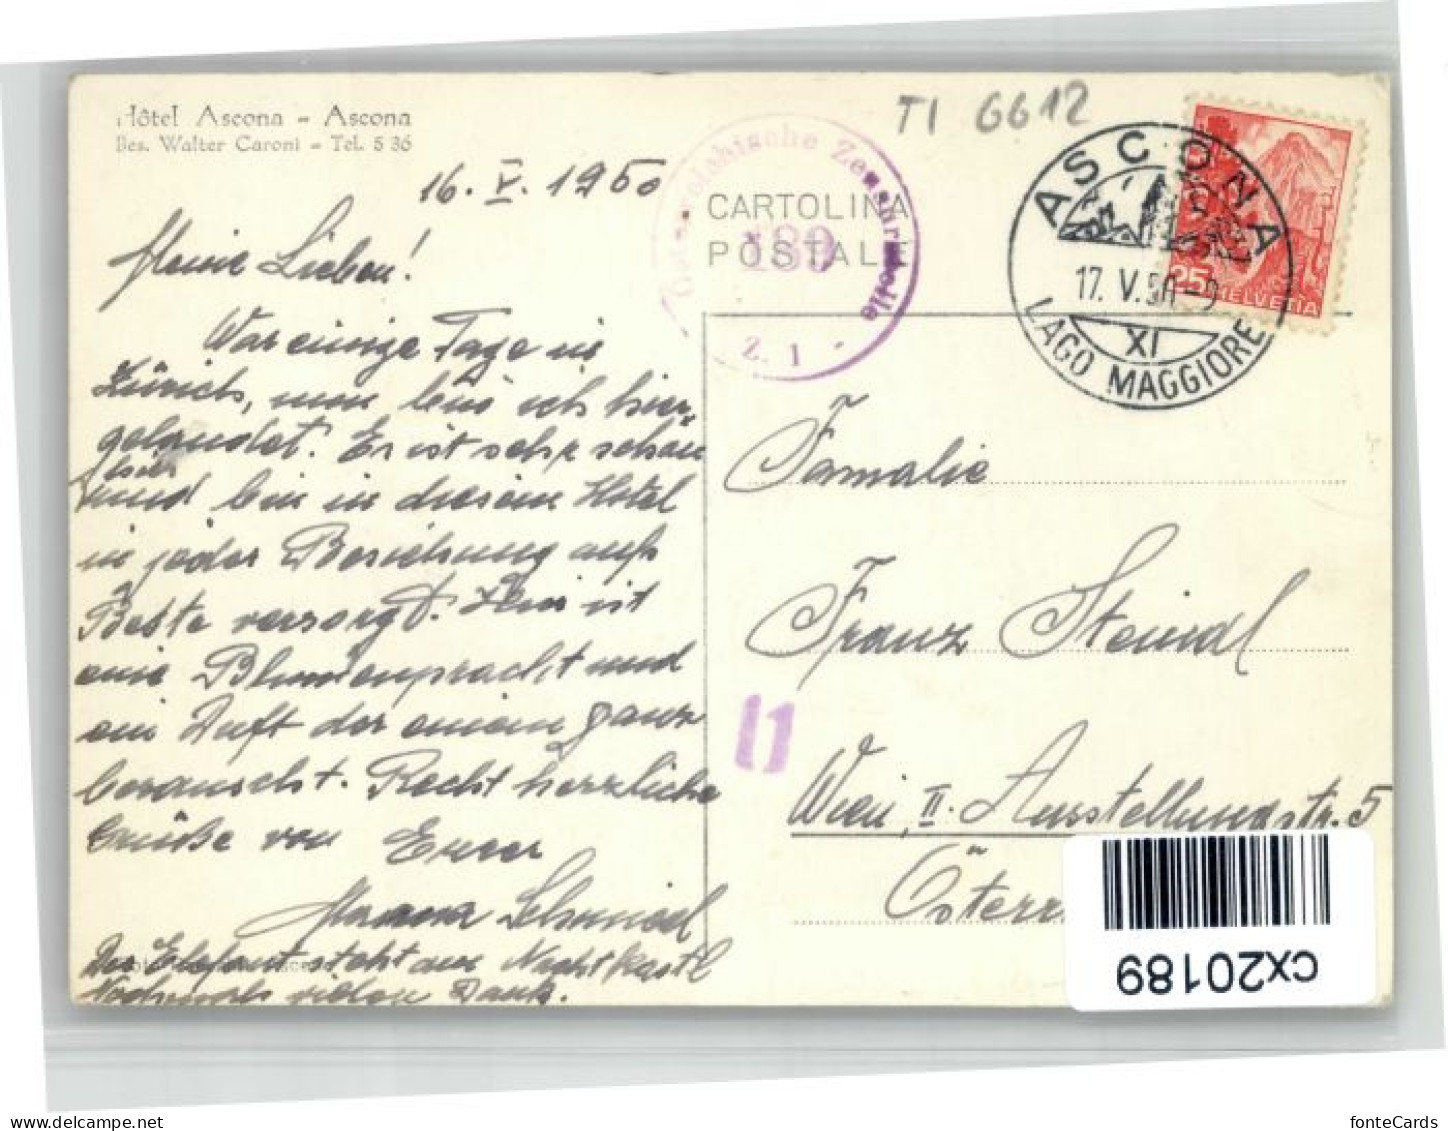 Hôtel Ascona - Ascona
Bes. Walter Caroni - Tel. 5 36
16. V. 1950
Meine Lieben!
War einige Tage in
Zürich, nun bin ich hier
gelandet. Es ist sehr schön
hier
und bin in diesem Hotel
in jeder Beziehung aufs
Beste versorgt. Hier ist
eine Blumenpracht und
ein Duft der einen ganz
berauscht. Recht herzliche
Grüße von Eurer
Schmied
Der Elefant steht am Nachtkastl
Nochmals vielen Dank.
TI 6612
Österreichische Zensurstelle
189
Z. 1
CARTOLINA
POSTALE
ASCONA
17. V. 50 - 9
XI
LAGO MAGGIORE
25
HELVETIA
Familie
Franz Steindl
11
Wien, II. Ausstellungsstr. 5
Österr
cx20189
fonteCards